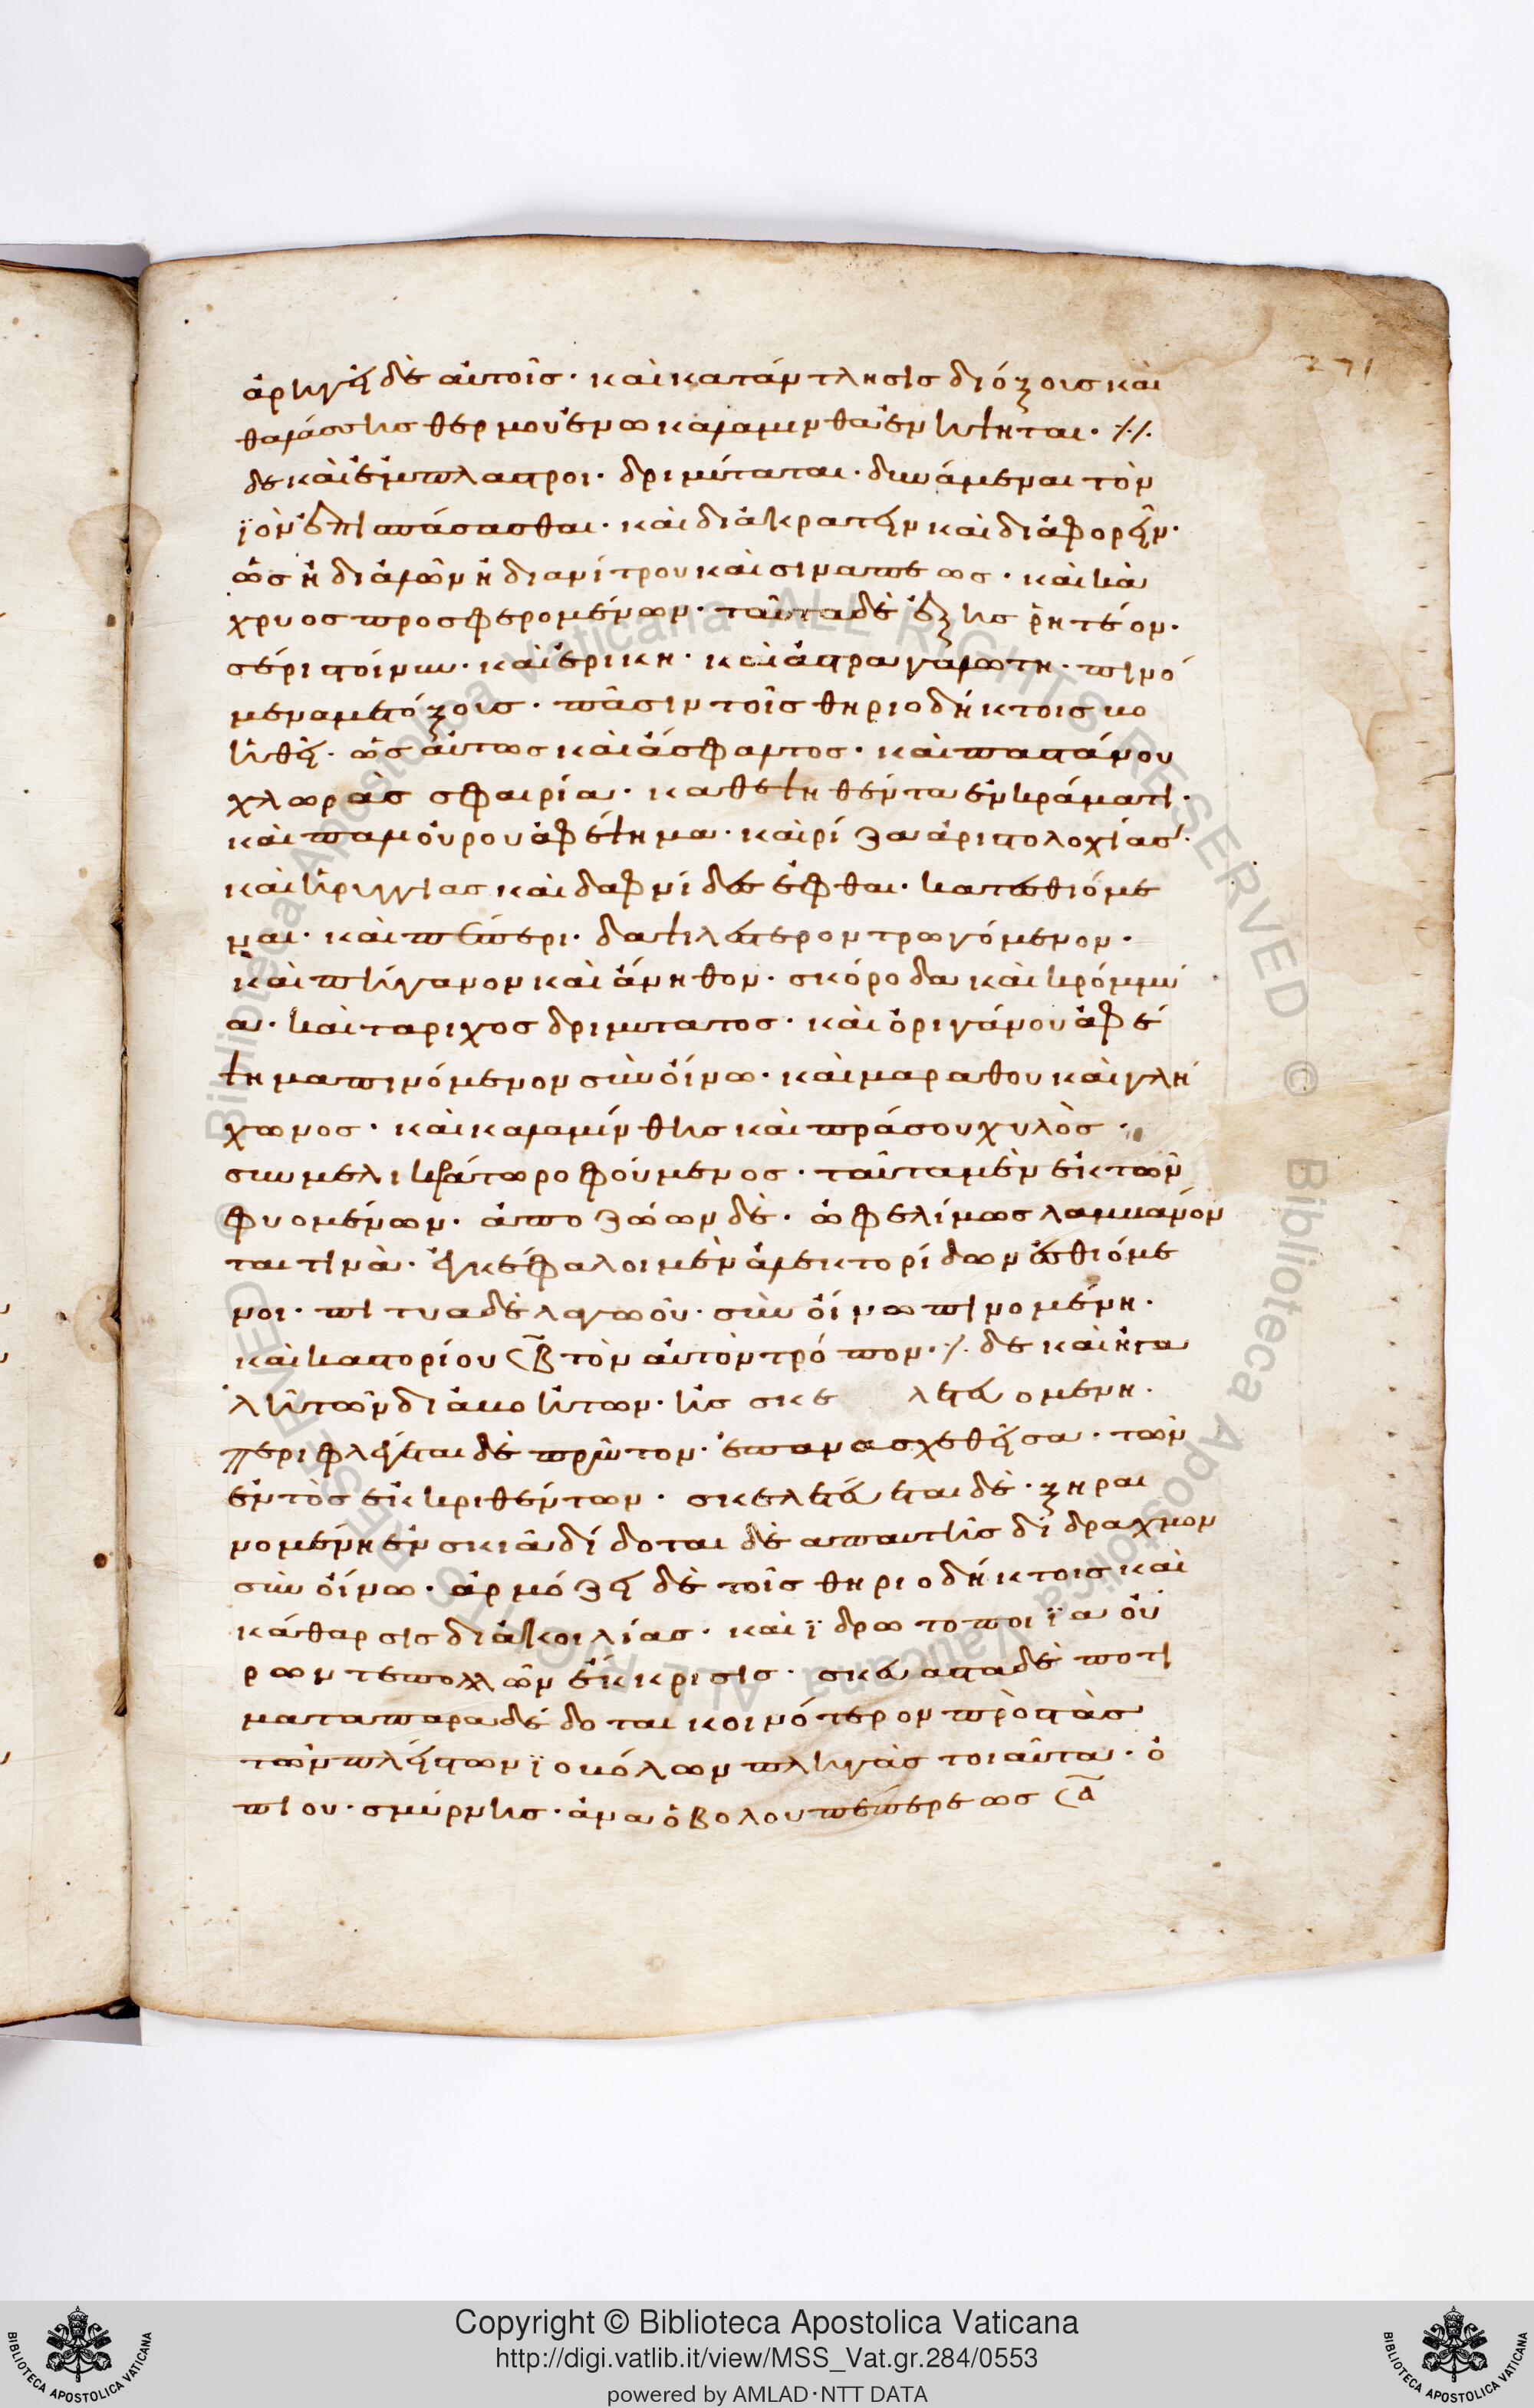 271
ἀρήγει δὲ αὐτοῖς · καὶ κατάντλησις δι ὄξους καὶ
θαλάσσης θερμοῦ ἐν ω καλαμινθα ἐνήψηται · ·/·/·
δὲ καὶ ἔμπλαστροι · δριμύταται · δυνάμεναι τὸν
ϊὸν ἐπισπάσασθαι · καὶ διακρατεῖν καὶ διαφορεῖν ·
ὡς ἡ δι ἁλῶν ἢ δια νίτρου καὶ σινάπεως · καὶ κά
χρυος προσφερομένων · ταῦτα δὲ ἑξῆς ῥητέον ·
σέρις ποίνυν · καὶ ἐρίκη · καὶ ἀστραγαλωτη · πινό
μενα μετ ὄξους · πᾶσιν τοῖς θηριοδήκτοις βο
ηθεῖ · ὡς αύτως καὶ ἄσφαλτος · καὶ πλατάνου
χλωρὰς σφαιρία · καθεψηθέντα ἐν κράματι ·
καὶ παλιούρου ἀφέψημα · καὶ ρίζα ἀριστολοχίας ·
καὶ ηριγγίας καὶ δαφνίδες ἑφθαι · κατεσθιόμε
ναι · καὶ πέπερι · δαψιλέστερον τρωγόμενον ·
καὶ πήγανον καὶ ἄνηθον · σκόροδα καὶ κρόμμυ
α · καὶ ταριχος δριμυτατος · καὶ ὀριγάνου ἀφέ
ψημα πινόμενον σὺν οἴνω · καὶ μαραθου καὶ γλή
χωνος · καὶ καλαμίνθης καὶ πράσου χυλὸς ·
συν μελικράτω ροφούμενος · ταῦτα μὲν ἐκ τῶν
φυομένων · ἀπο ζώων δὲ · ὠφελίμως λαμβάνον
ται τινὰ · ἐγκέφαλοι μὲν ἀλεκτορίδων ἐσθιόμε
νοι · πιτυα δὲ λαγωοῦ · σὺν οἴνω πινομένη ·
καὶ καστορίου 𐅻β τὸν αὐτὸν τρόπον · ·/· δὲ καὶ ἡ γα
λῆ τῶν διαβοήτων · ἡς σκε λετευομενη ·
περιφλέγεται δὲ πρῶτον · ἐπανασχεθεῖσα · τῶν
ἐντὸς ἐκκριθέντων · σκελετεύεται δὲ · ξηραι
νομένη ἐν σκιᾶ δίδοται δὲ απαυτῆς δι δραχμον
σὺν οἴνω · ἁρμόζει δὲ τοῖς θηριοδήκτοις καὶ
κάθαρσις δια κοιλίας · καὶ ϊδρωτοποιϊα οὐ
ρων τε πολλῶν ἔκκρισις · σκευαστα δὲ ποτί
ματα παραδέδοται κοινότερον πρὸς τὰς
τῶν πλείστων ϊοβόλων πληγὰς τοιαῦτα · ὀ
πίου · σμύρνης · ἀνα ὀβολου πεπέρεως 𐅻α
Copyright © Biblioteca Apostolica Vaticana
http://digi.vatlib.it/view/MSS_Vat.gr.284/0553
powered by AMLAD·NTT DATA
BIBLIOTECA APOSTOLICA VATICANA
BIBLIOTECA APOSTOLICA VATICANA
© Biblioteca Apostolica Vaticana ALL RIGHTS RESERVED © Biblioteca Apostolica Vaticana ALL RIGHTS RESERVED